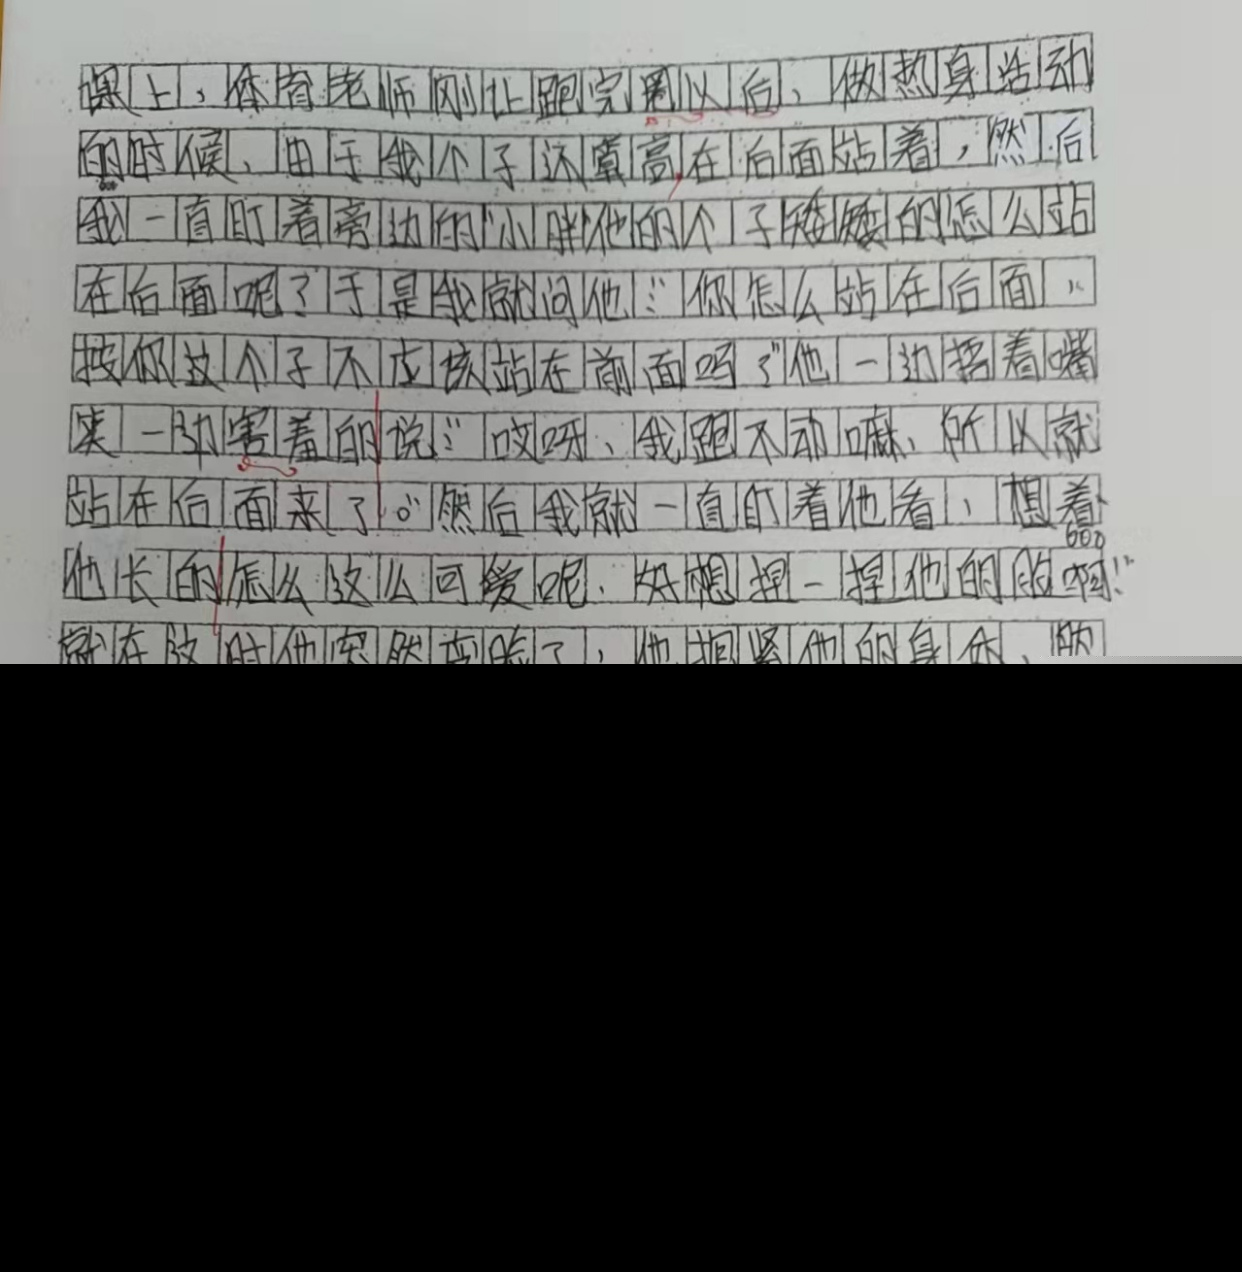 课上，体育老师刚让跑完圈以后，做热身活动
的时候，由于我个子还算高在后面站着，然后
我一直盯着旁边的“小胖”他的个子矮矮的怎么站
在后面呢？于是我就问他：“你怎么站在后面，
按你这个子不应该站在前面吗？”他一边捂着嘴
笑一边害羞的说：“哎呀，我跑不动嘛，所以就
站在后面来了。”然后我就一直盯着他看，想着
他长的怎么这么可爱呢，好想捏一捏他的脸啊！”
就在这时他突然变脸了，他抱紧他的身体，